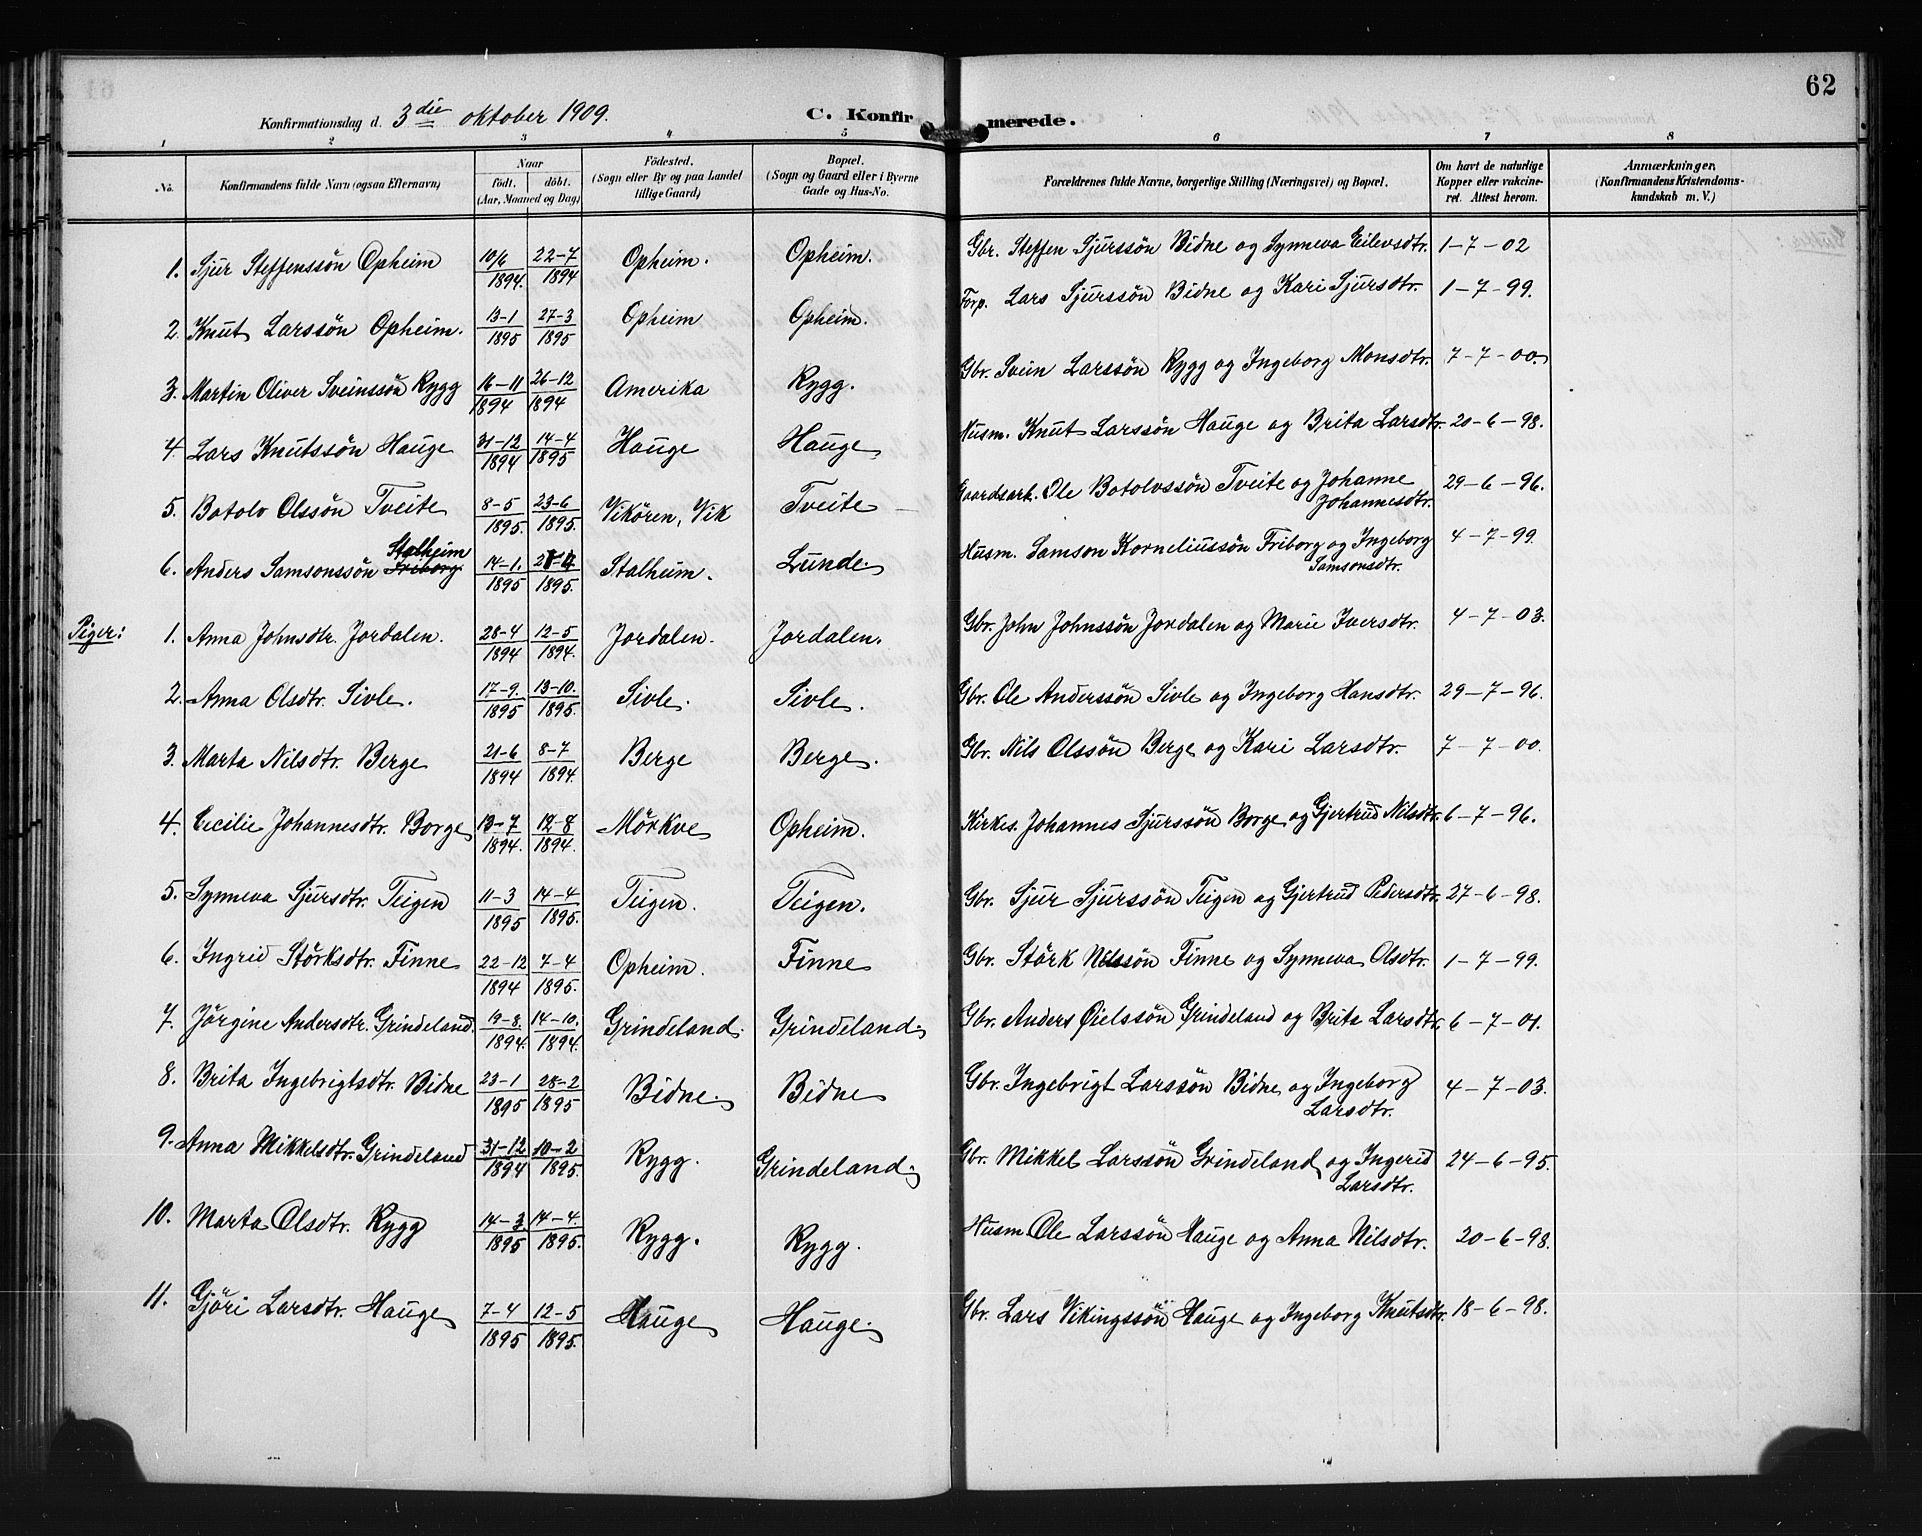 62
Konfirmationsdag d. 3die oktober 1909.
C. Konfirmerede.
1 2 3 4 5 6 7 8
No.
Konfirmandens fulde Navn (ogsaa Efternavn)
Naar
födt. döbt.
(Aar, Maaned og Dag)
Födested.
(Sogn eller By og paa Landet
tillige Gaard)
Bopæl.
(Sogn og Gaard eller i Byerne
Gade og Hus-No.
Forældrenes fulde Navne, borgerlige Stilling (Næringsvei) og Bopæl.
Om havt de naturlige
Kopper eller vakcine-
ret. Attest herom.
Anmærkninger,
(Konfirmandens Kristendoms-
kundskab m. V.)
1. Sjur Steffenssön Opheim 10/6 1894. 22-7 1894 Opheim. Opheim. Gbr. Steffen Sjurssön Bidne og Synneva Eilevsdtr. 1-7-02
2. Knut Larssön Opheim. 13-1 1895 27-3 1895 Opheim Opheim. Forp. Lars Sjurssön Bidne og Kari Sjursdtr. 1-7-99.
3. Martin Oliver Sveinssön Rygg 16-11 1894 26-12 1894 Amerika Rygg. Gbr. Svein Larssön Rygg og Ingeborg Monsdtr. 7-7-00.
4. Lars Knutssön Hauge 31-12 1894 14-4 1895 Hauge Hauge Husm. Knut Larssön Hauge og Brita Larsdtr. 20-6-98.
5. Botolv Olssön Tveite 8-5 1895. 23-6 1895. Vikören, Vik Tveite Gaardsarb. Ole Botolvssön Tveite og Johanne
Johannesdtr. 29-6-96.
Stalheim
6. Anders Samsonssön Friborg. 14-1. 1895 21-4 1895. Stalheim. Lunde. Husm. Samson Korneliussön Friborg og Ingeborg
Samsonsdtr. 4-7-99.
Piger: 1. Anna Johnsdtr. Jordalen. 28-4 1894 12-5 1894. Jordalen. Jordalen. Gbr. John Johnssön Jordalen og Marie Iversdtr. 4-7-03.
2. Anna Olsdtr. Sivle. 17-9. 1895 13-10. 1895. Sivle. Sivle. Gbr. Ole Anderssön Sivle og Ingeborg Hansdtr. 29-7-96.
3. Marta Nilsdtr. Berge 21-6 1894 8-7 1894. Berge Berge. Gbr. Nils Olssön Berge og Kari Larsdtr. 7-7-00.
4. Cecilie Johannesdtr. Borge 13-7 1894. 12-8 1894. Mörkve Opheim. Kirkes. Johannes Sjurssön Borge og Gjertrud Nilsdtr. 6-7-96.
5. Synneva Sjursdtr. Teigen 11-3 1895 14-4 1895. Teigen. Teigen. Gbr. Sjur Sjurssön Teigen og Gjertrud Pedersdtr. 27-6-98.
6. Ingrid Störksdtr. Finne 22-12 1894 7-4 1895. Opheim. Finne Gbr. Störk Nilssön Finne og Synneva Olsdtr. 1-7-99.
7. Jörgine Andersdtr. Grindeland. 19-8. 1894. 14-10. 1894. Grindeland. Grindeland. Gbr. Anders Öielssön Grindeland og Brita Larsdtr. 6-7-01.
8. Brita Ingebrigtsdtr. Bidne 23-1 1895 28-2 1895 Bidne. Bidne Gbr. Ingebrigt Larssön Bidne og Ingeborg
Larsdtr. 4-7-03.
9. Anna Mikkelsdtr. Grindeland 31-12 1894 10-2 1895. Rygg. Grindeland. Gbr. Mikkel Larssön Grindeland og Ingerid
Larsdtr. 24-6-95.
10. Marta Olsdtr. Rygg 14-3. 1895 14-4. 1895. Rygg. Rygg. Husm. Ole Larssön Hauge og Anna Nilsdtr. 20-6-98.
11. Gjöri Larsdtr. Hauge 7-4 1895 12-5 1895. Hauge Hauge. Gbr. Lars Vikingssön Hauge og Ingeborg Knutsdtr. 18-6-98.